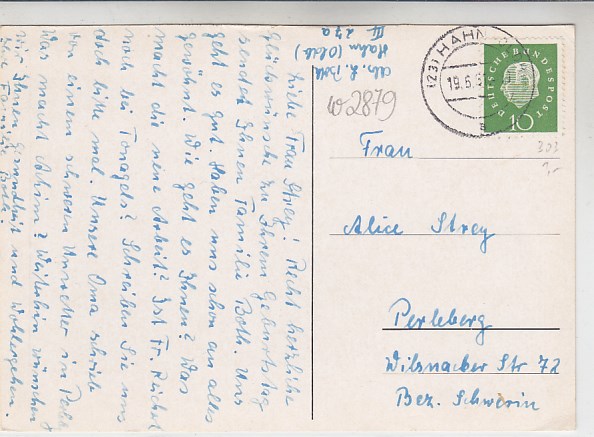 Liebe Frau Strey! Recht herzliche
Glückwünsche zu Ihrem Geburtstag
sendet Ihnen Familie Both. Uns
geht es gut. Haben uns schon an alles
gewöhnt. Wie geht es Ihnen? Was
macht die neue Arbeit? Ist Fr. Reichert
noch bei Tonagels? Schreiben Sie uns
doch bitte mal. Unsere Oma schrieb
von einem schweren Unwetter in Perle
Was macht Achim? Weiterhin wünschen
wir Ihnen Gesundheit und Wohlergehen.
Ihre Familie Both.
Abs. Both
Hahn (Oldb)
III 27a
W 2879
(23) HAHN
19.6.5
DEUTSCHE BUNDESPOST
10
303
1,-
Frau
Alice Strey
Perleberg
Wilsnacker Str 72
Bez. Schwerin